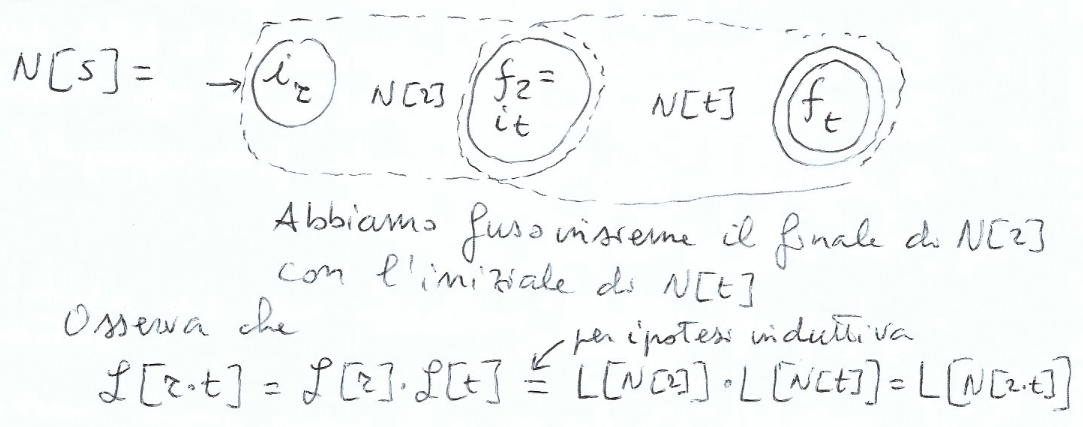 N[s] =
i_r N[r] f_r = i_t N[t] f_t
Abbiamo fuso insieme il finale di N[r]
con l'iniziale di N[t]
Osserva che
per ipotesi induttiva
ℒ[r·t] = ℒ[r]·ℒ[t] = L[N[r]]·L[N[t]] = L[N[r·t]]